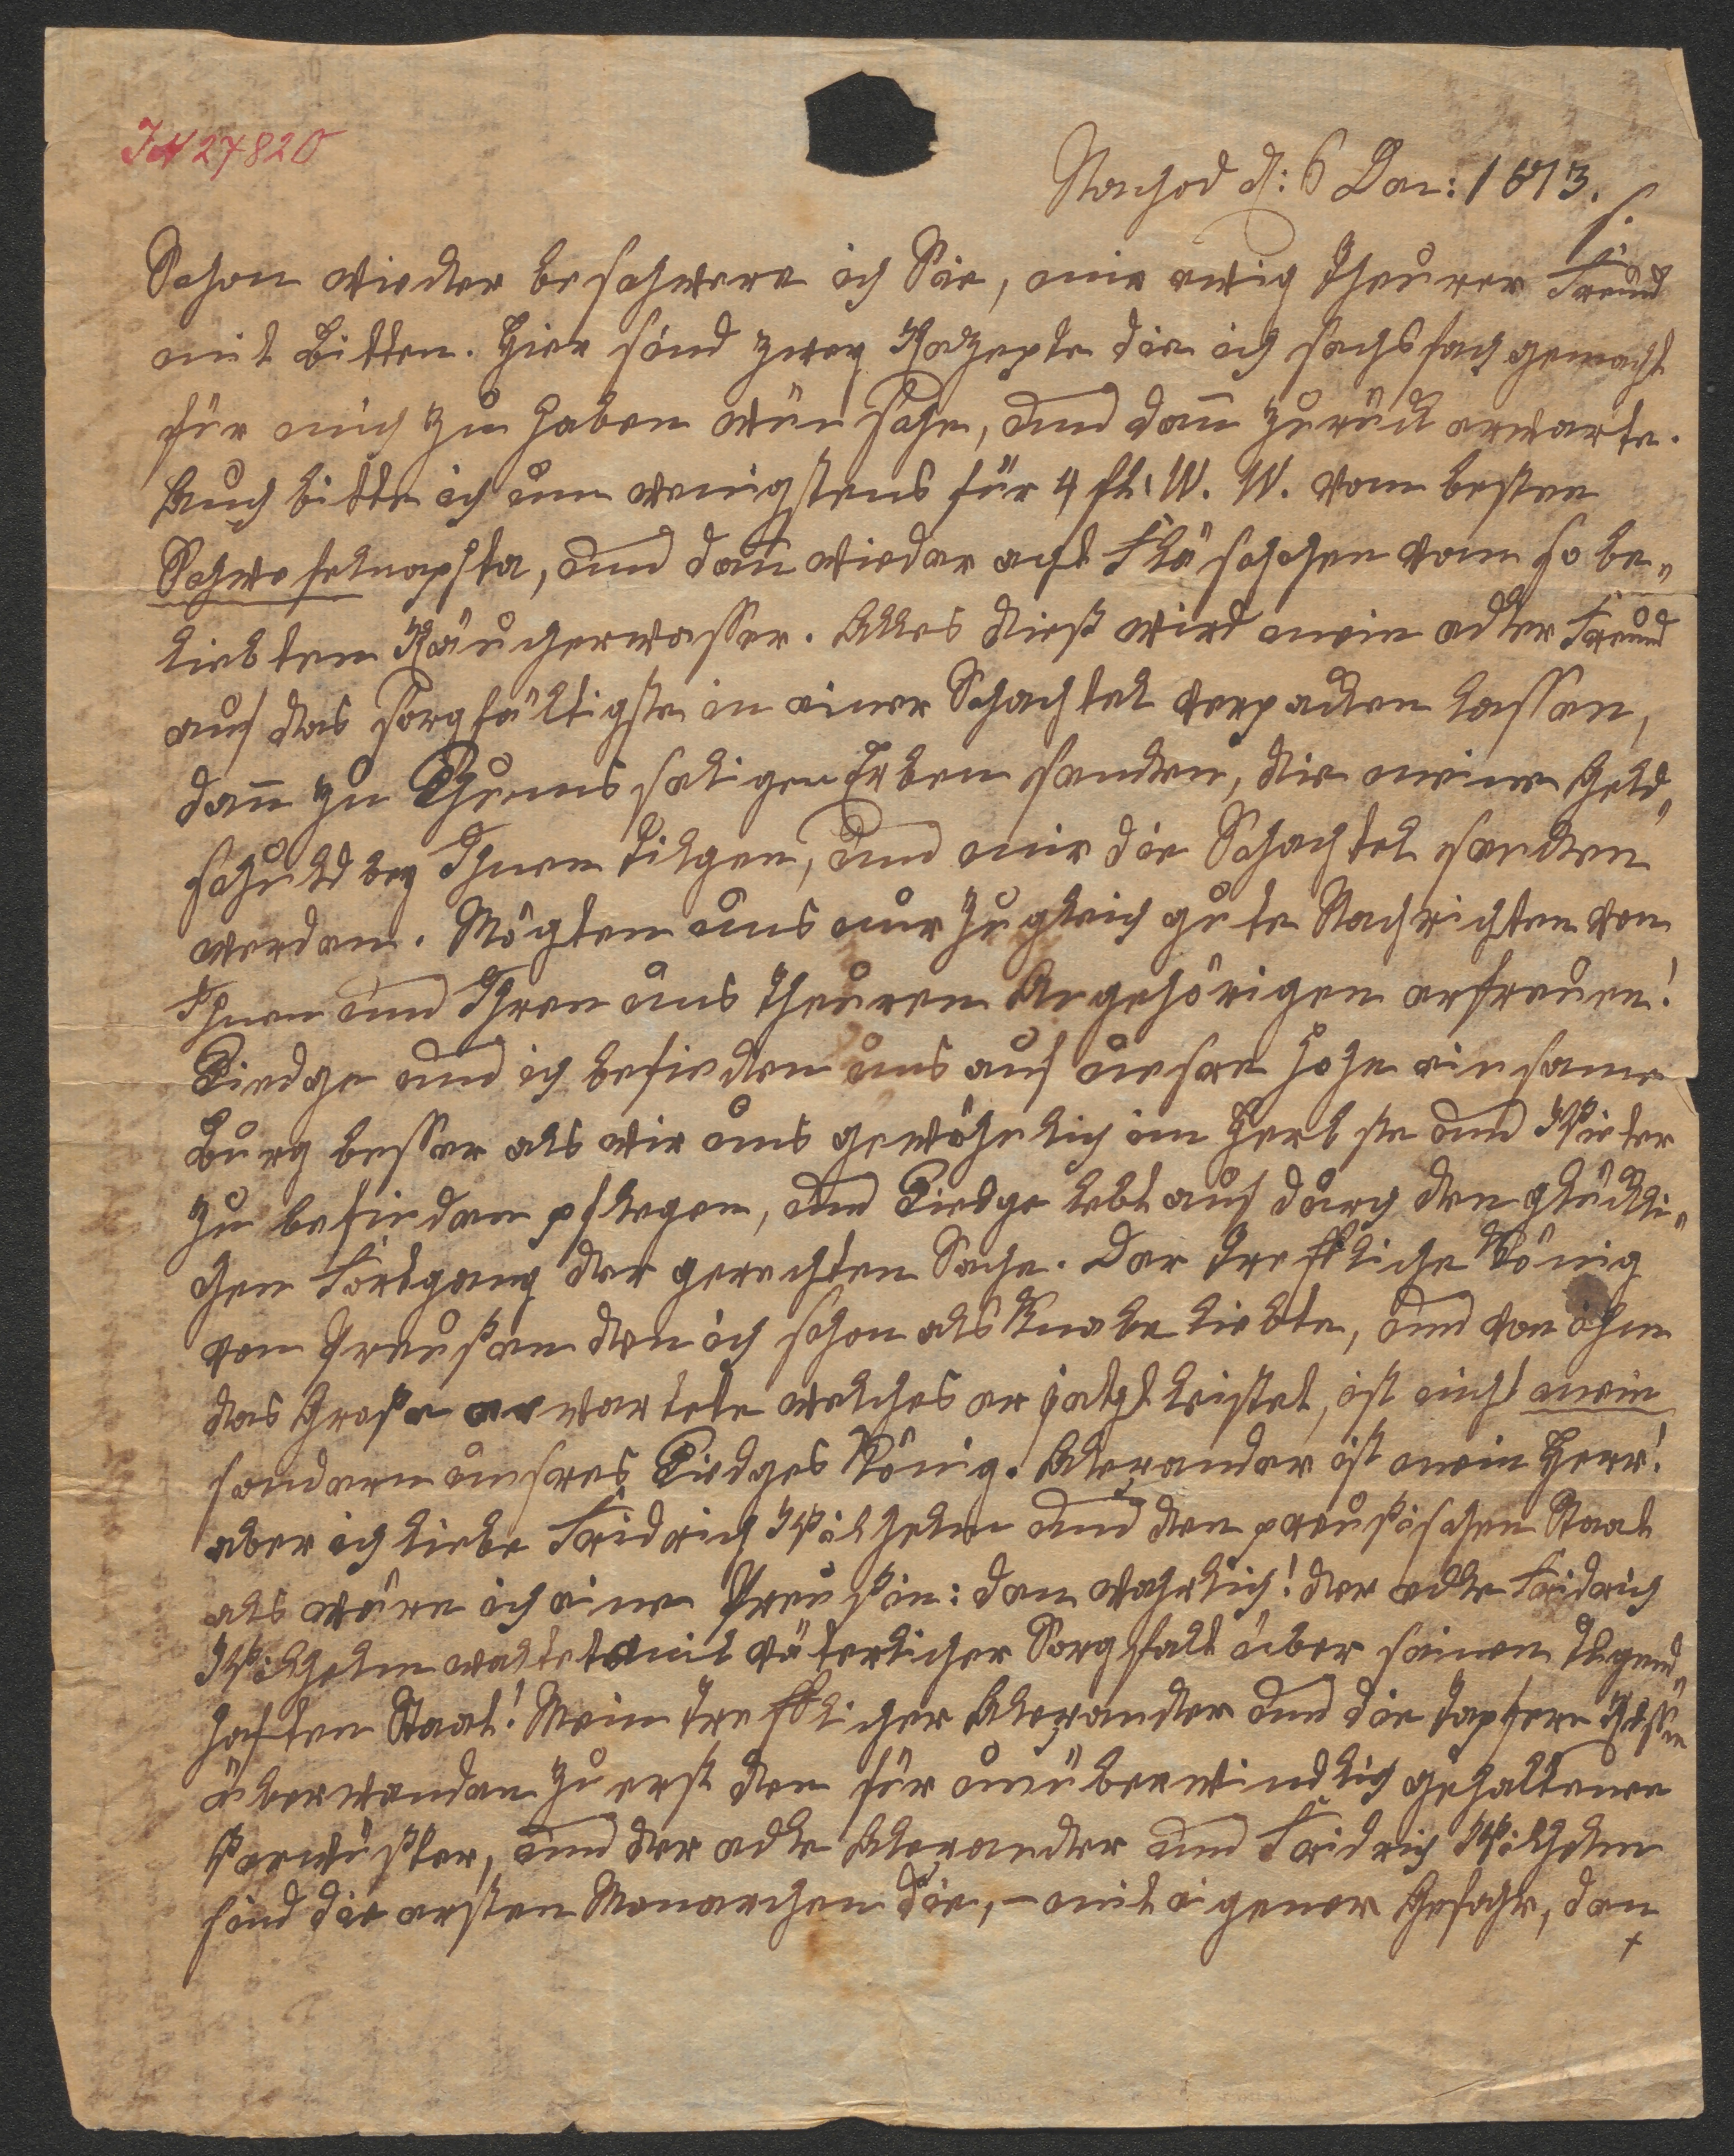 IN 27820
Nachod d: 6 Dec: 1813.
Schon wieder beschwere ich Sie, mir ewig theurer Freund
mit Bitten. Hier sind zwey Rezepte die ich sechsfach gemacht
für mich zu haben wünsche, und dan̅ zurück erwarte.
Auch bitte ich um wenigstens für 4 fl. W. W. vom besten
Schwefelnapfta, und dan̅ wieder acht Fläschchen vom so be„
liebten Räucherwasser. Alles dieß wird mein edler Freund
auf das sorgfältigste in einer Schachtel verpacken lassen,
dan̅ zu Thuns seligen Erben senden, die meine Geld„
schuld bey Ihnen tilgen, und mir die Schachtel senden
werden. Mögten uns nur zugleich gute Nachrichten von
Ihnen und Ihren uns theuren Angehörigen erfreuen!
Tiedge und ich befinden uns auf unsre hohe einsame
Burg besser als wir uns gewöhnlich im Herbste und Winter
zu befinden pflegen, und Tiedge lebt auf durch den glückli„
chen Fortgang der gerechten Sache. Der treffliche König
von Preußen den ich schon als Knabe liebte, und von ihm
das Große erwartete welches er jetzt leistet, ist nicht mein
sondern unsres Tiedges König. Alexander ist mein Herr!
aber ich liebe Fridrich Wilhelm und den preußischen Staat
als wäre ich eine Preußin: den wahrlich! der edle Fridrich
Wilhelm waltet mit väterlicher Sorgfalt über seinen tugend„
haften Staat! Mein trefflicher Alexander und die tapfern Russen
überwanden zuerst den für unüberwindlich gehaltenen
Verwüster, und der edle Alexander und Fridrich Wilhelm
sind die ersten Monarchen die, – mit eigener Gefahr, den
+